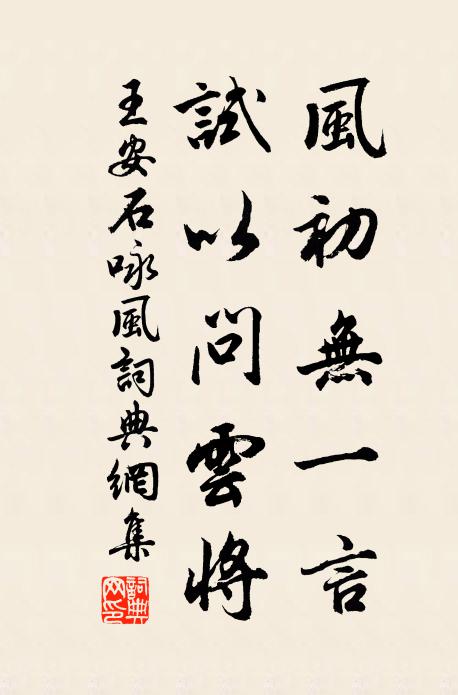 風初無一言
試以問雲將
王安石咏風詞典網集
詞典
網印